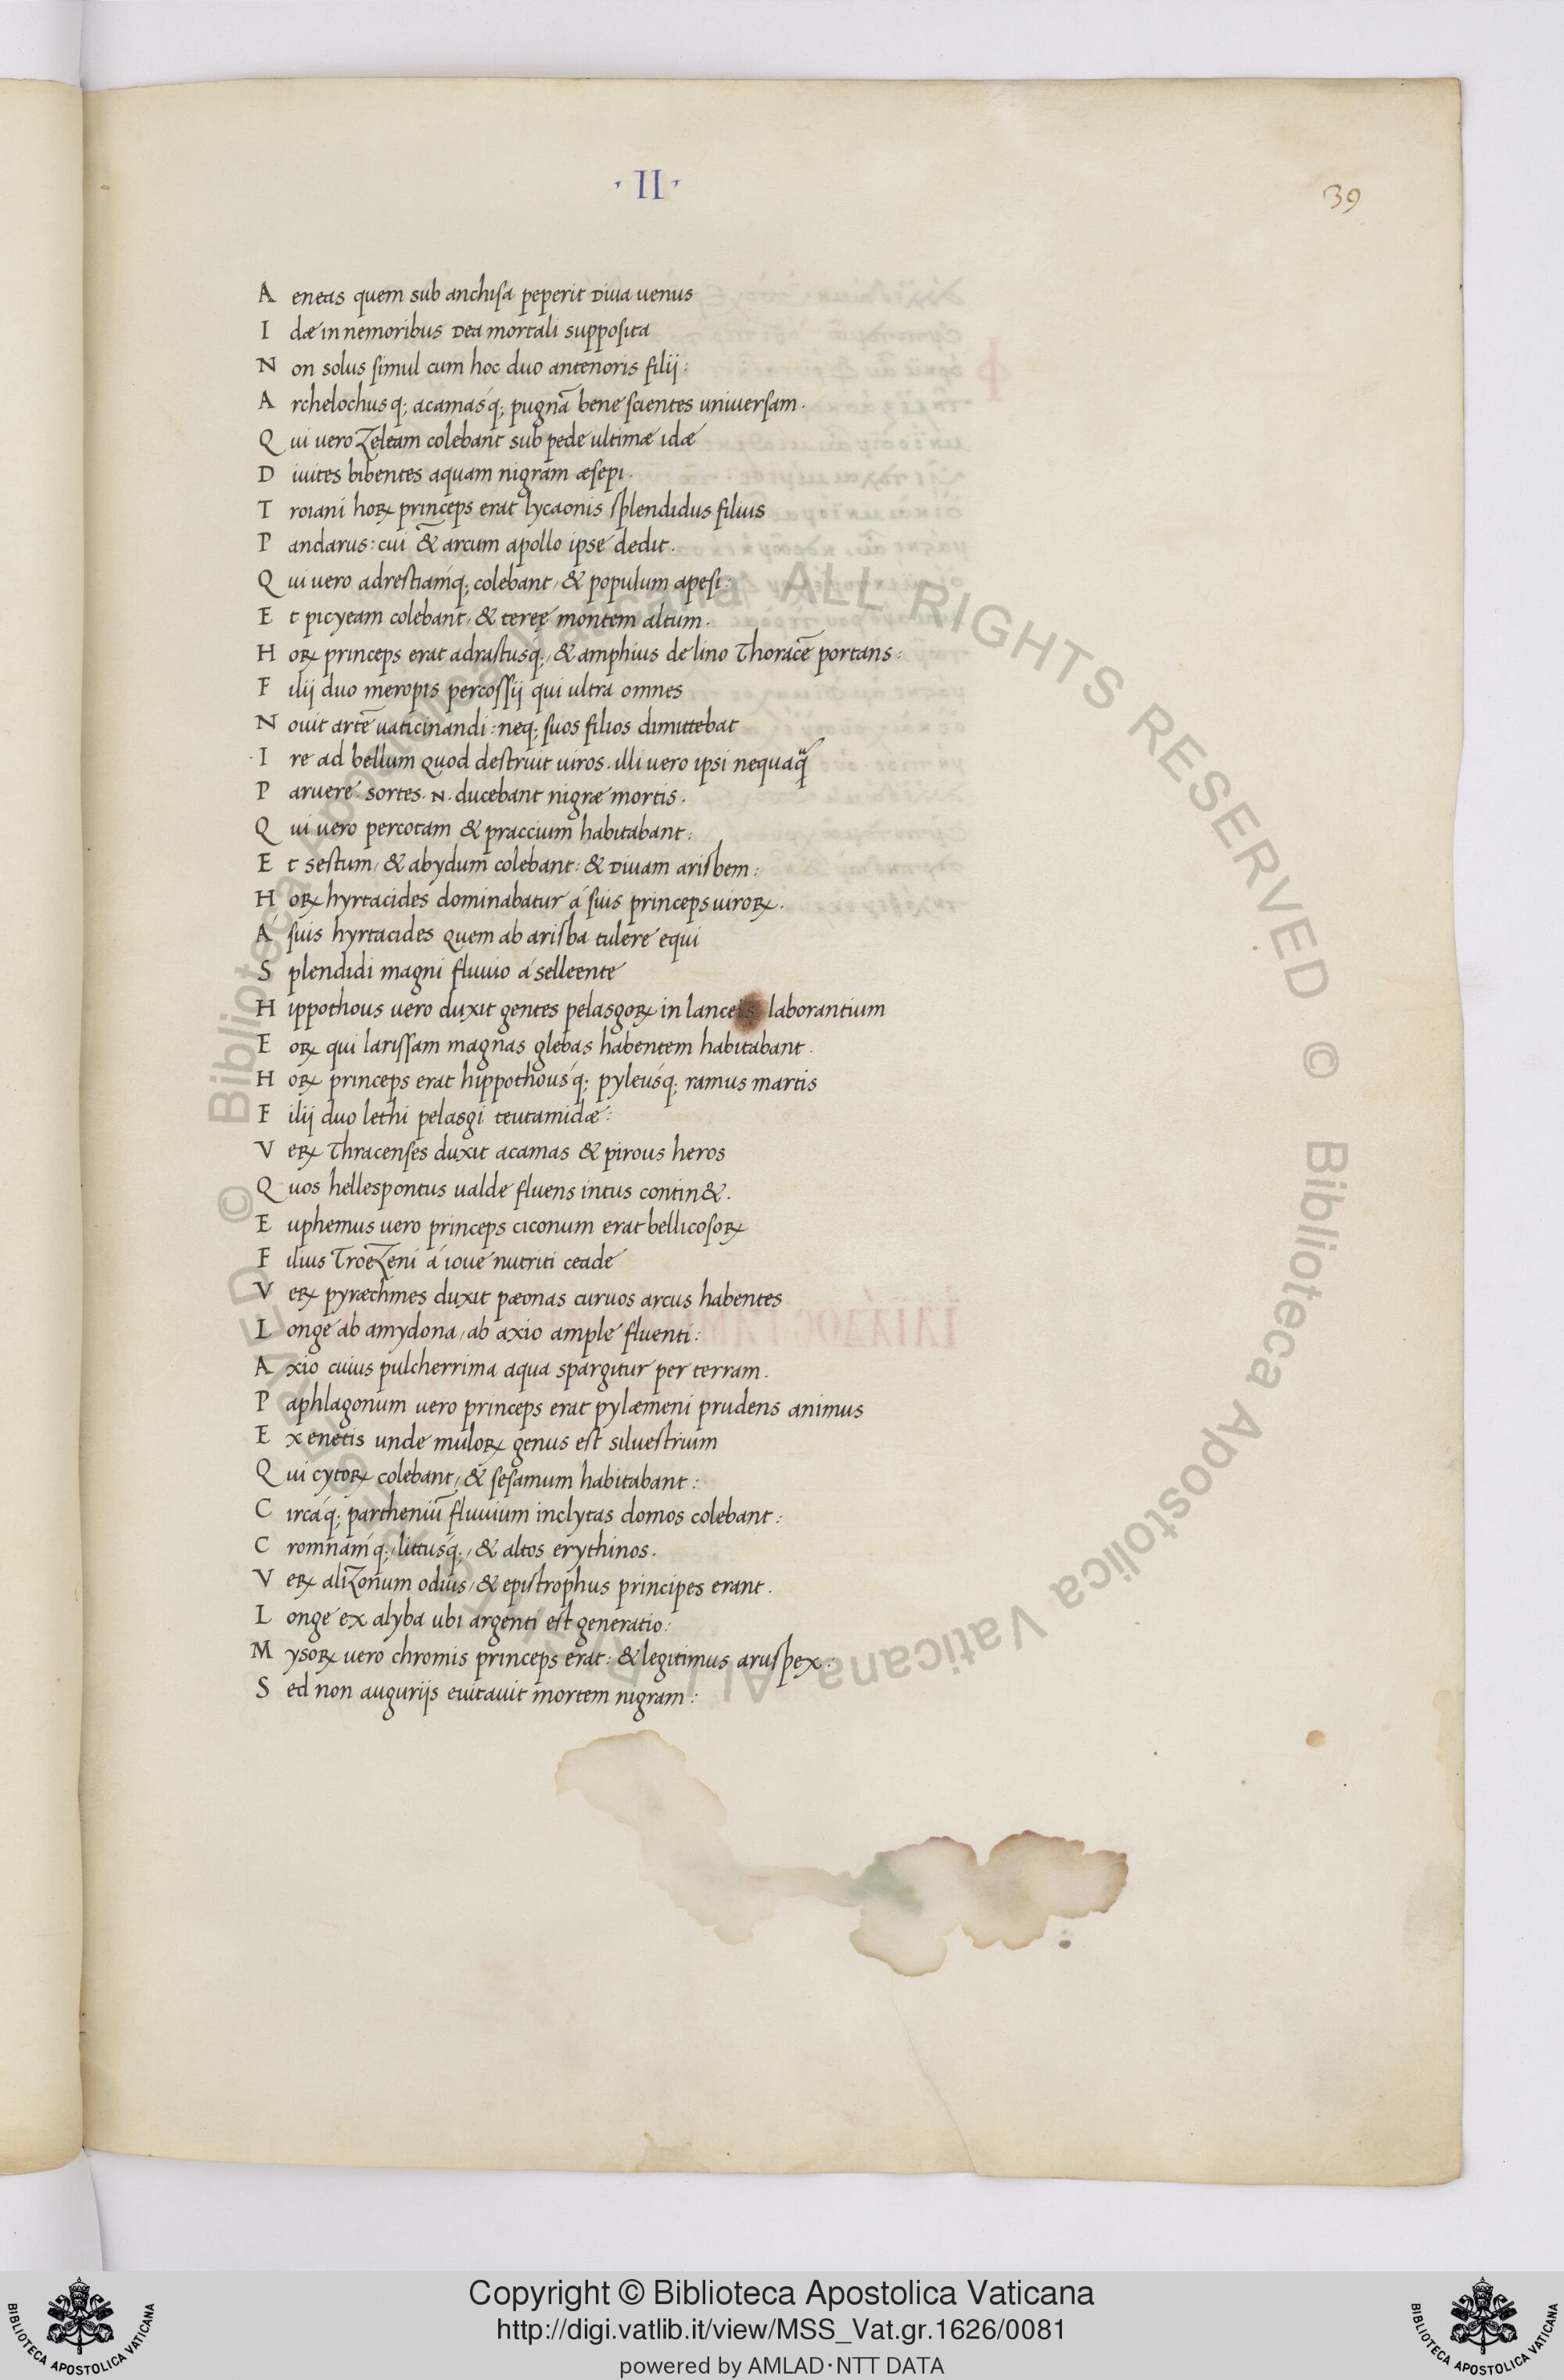 · II ·
39
Aeneas quem sub anchisa peperit diua uenus
Idæ in nemoribus dea mortali supposita
Non solus simul cum hoc duo antenoris filij:
Archelochusq; acamasq́; pugnā bene scientes uniuersam.
Qui uero Zeleam colebant sub pede ultimæ idæ
Diuites bibentes aquam nigram æsepi.
Troiani hoꝝ princeps erat lycaonis splendidus filius
Pandarus: cui & arcum apollo ipse dedit.
Qui uero adrestiamq́; colebant, & populum apesi:
Et picyeam colebant, & tereę montem altum.
Hoꝝ princeps erat adrastusq;, & amphius de lino thoracē portans:
Filij duo meropis percossij qui ultra omnes
Nouit artē uaticinandi: neq; suos filios dimittebat
Ire ad bellum quod destruit uiros. illi uero ipsi nequaq̃
Paruere. sortes. N. ducebant nigræ mortis.
Qui uero percotam & praccium habitabant:
Et sestum, & abydum colebant: & diuam arisbem:
Hoꝝ hyrtacides dominabatur á suis princeps uiroꝝ.
Á suis hyrtacides quem ab arisba tulere equi
Splendidi magni fluuio á selleente
Hippothous uero duxit gentes pelasgoꝝ in lanceis laborantium
Eoꝝ qui larissam magnas glebas habentem habitabant.
Hoꝝ princeps erat hippothousq́; pyleusq́; ramus martis
Filij duo lethi pelasgi teutamidæ:
Veꝝ thracenses duxit acamas & pirous heros
Quos hellespontus ualde fluens intus contin&.
Euphemus uero princeps ciconum erat bellicosoꝝ
Filius TroeZeni á ioue nutriti ceade
Veꝝ pyræchmes duxit pæonas curuos arcus habentes
Longe ab amydona, ab axio ample fluenti:
Axio cuius pulcherrima aqua spargitur per terram.
Paphlagonum uero princeps erat pylæmeni prudens animus
Ex enetis unde muloꝝ genus est siluestrium
Qui cytoꝝ colebant, & sesamum habitabant:
Circaq́; partheniū fluuium inclytas domos colebant:
Cromnamq́;, littusq́;, & altos erythinos.
Veꝝ aliZonum odius, & epistrophus principes erant.
Longe ex alyba ubi argenti est generatio:
Mysoꝝ uero chromis princeps erat: & legitimus aruspex:
Sed non augurijs euitauit mortem nigram:
© Biblioteca Apostolica Vaticana ALL RIGHTS RESERVED © Biblioteca Apostolica Vaticana ALL RIGHTS RESERVED
Copyright © Biblioteca Apostolica Vaticana
http://digi.vatlib.it/view/MSS_Vat.gr.1626/0081
powered by AMLAD·NTT DATA
BIBLIOTECA APOSTOLICA VATICANA
BIBLIOTECA APOSTOLICA VATICANA